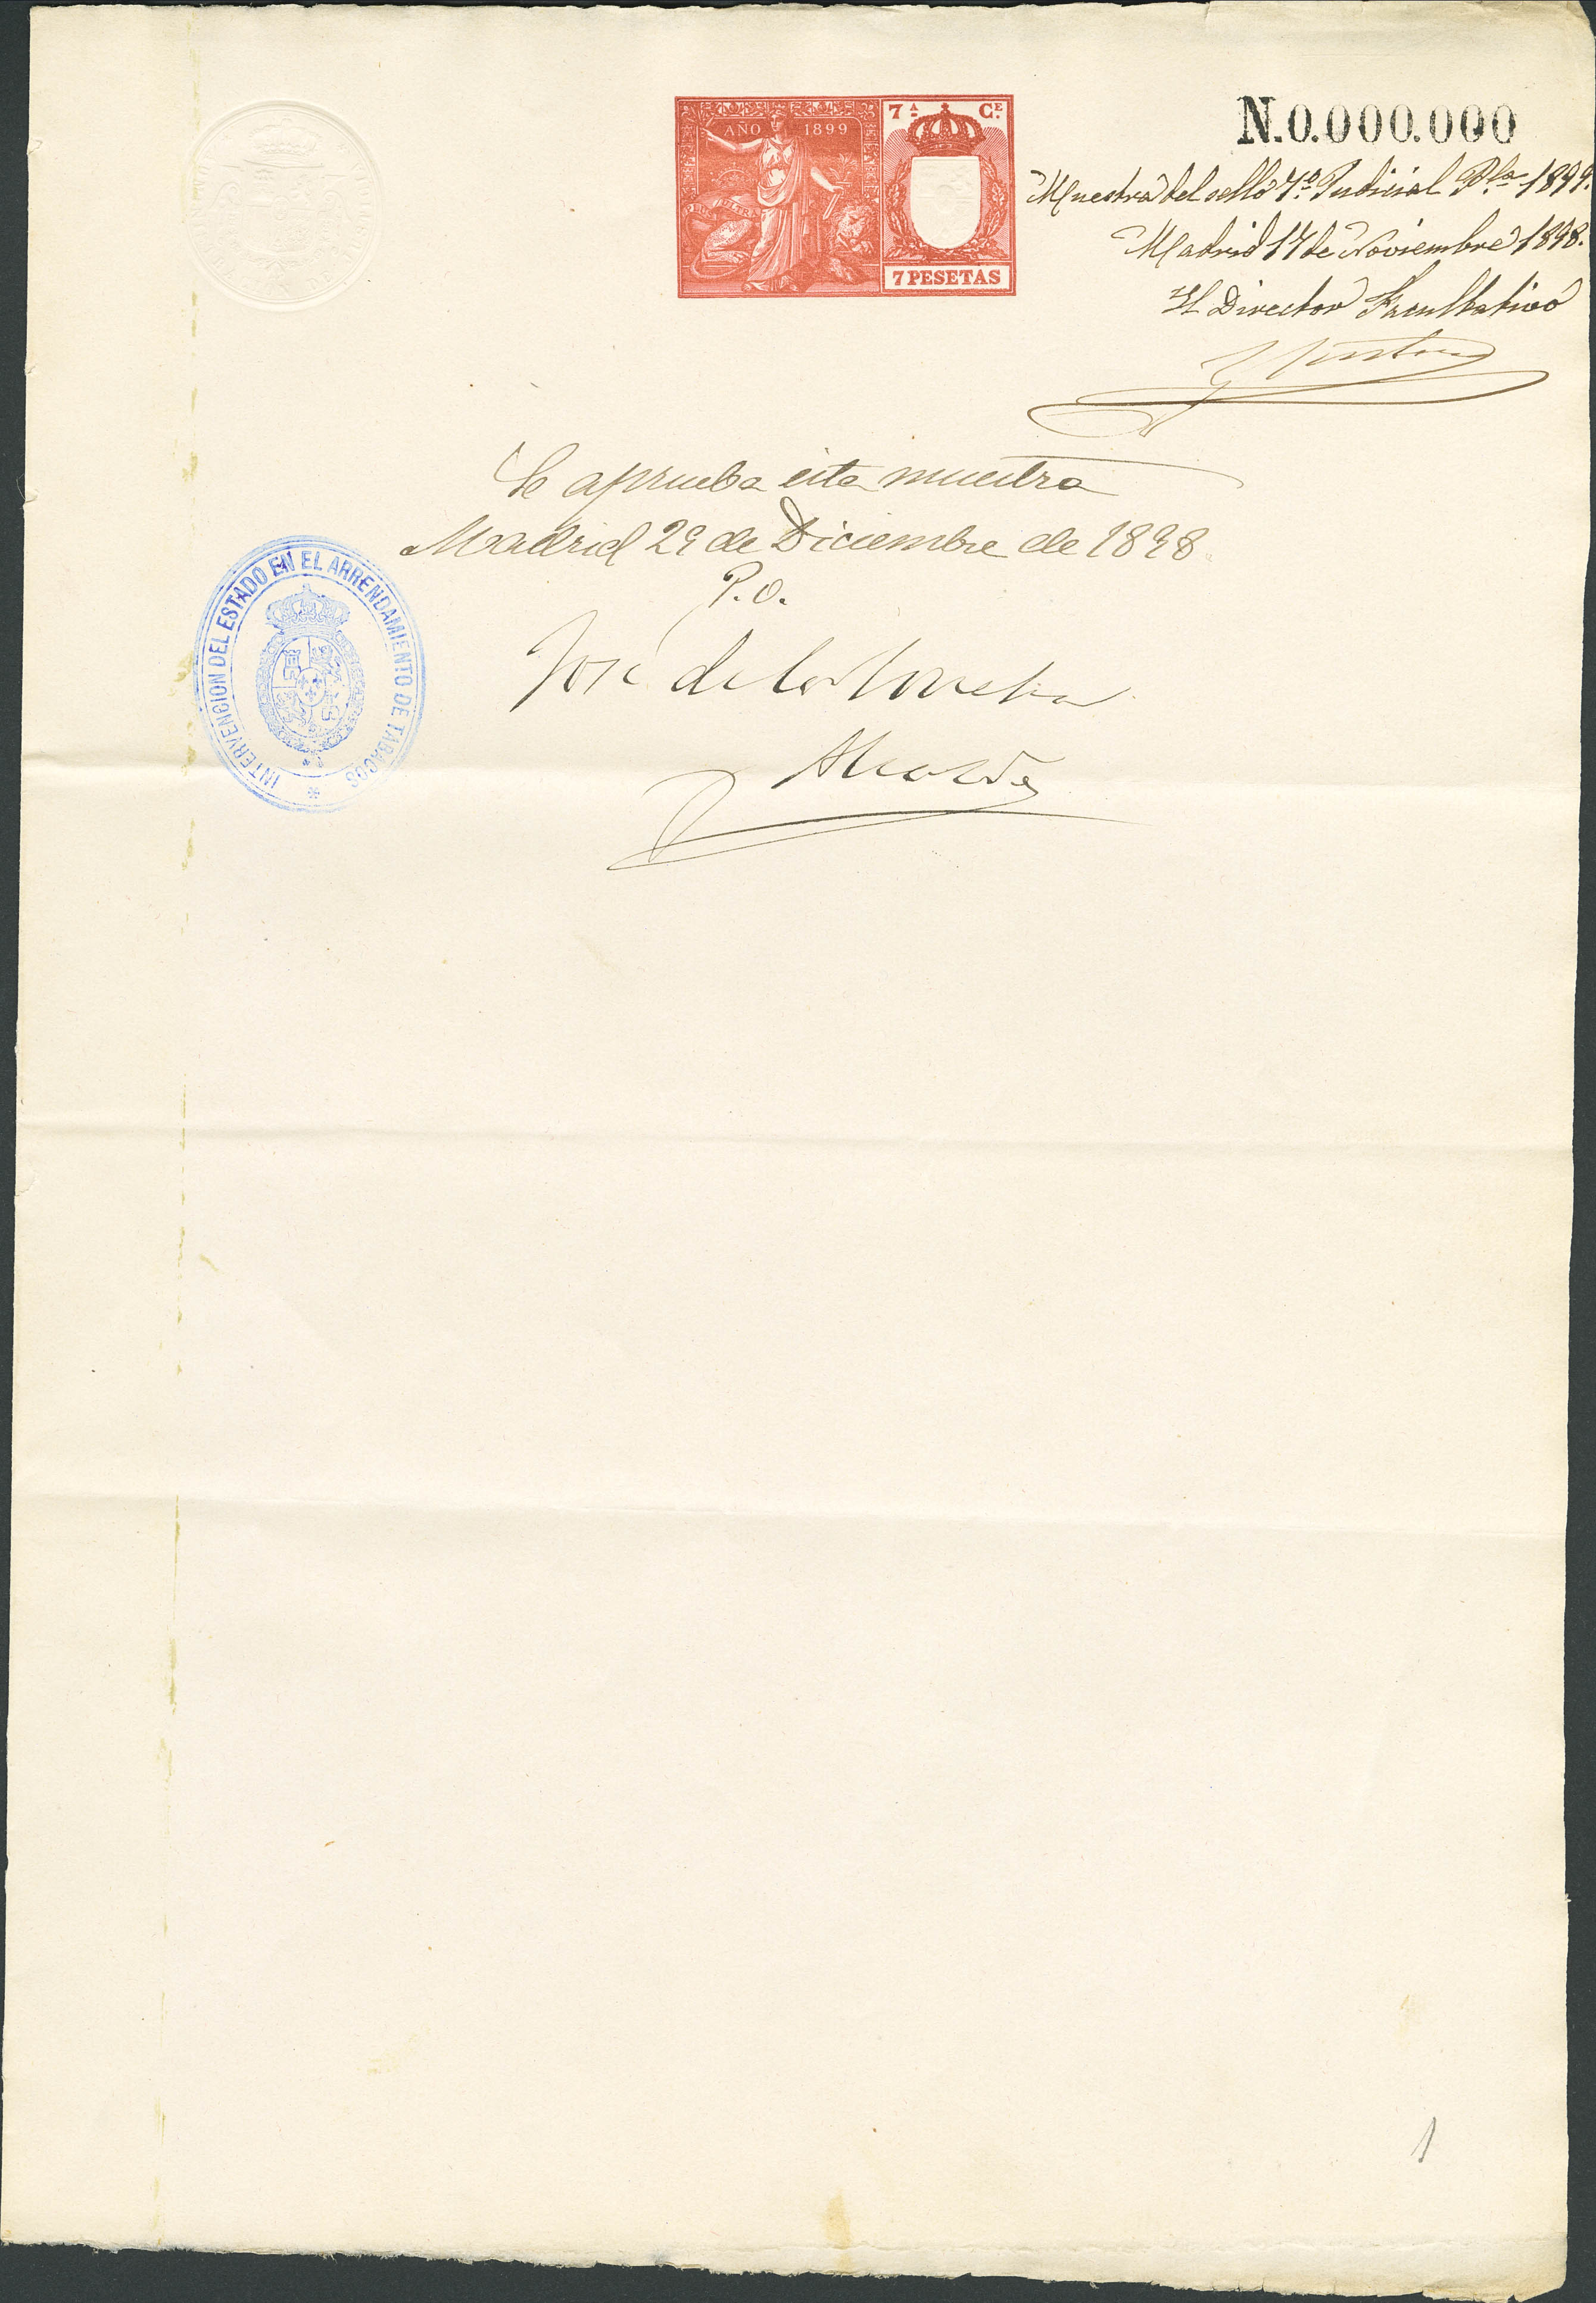 AÑO 1899
PLUS ULTRA
7ª Cᴱ.
7 PESETAS
N.0.000.000
Muestra del sello 7º Judicial Pla 1899.
Madrid 17 de Noviembre 1898.
El Director Facultativo
Se aprueba esta muestra
Madrid 29 de Diciembre de 1898
P.O.
José de la
INTERVENCION DEL ESTADO EN EL ARRENDAMIENTO DE TABACOS
1